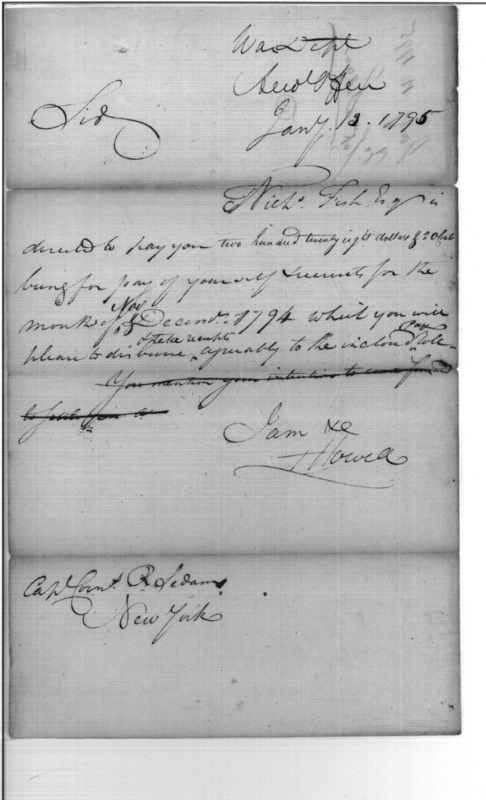 War Dept
Accts Office
Jany. 12. 1795
Sir
Nichs. Fish Esqr is
directed to pay you two hundred twenty eight dollars & 20 Cts
being for pay of yourself & recruits for the
months of Nov & Decemr. 1794 which you will
please to disburse & take receipts agreeably to the inclosed Pay Roll
You mention your intention to come forward
to settle
I am &c
J Howell
Capt Cornl. R Sedam
New York